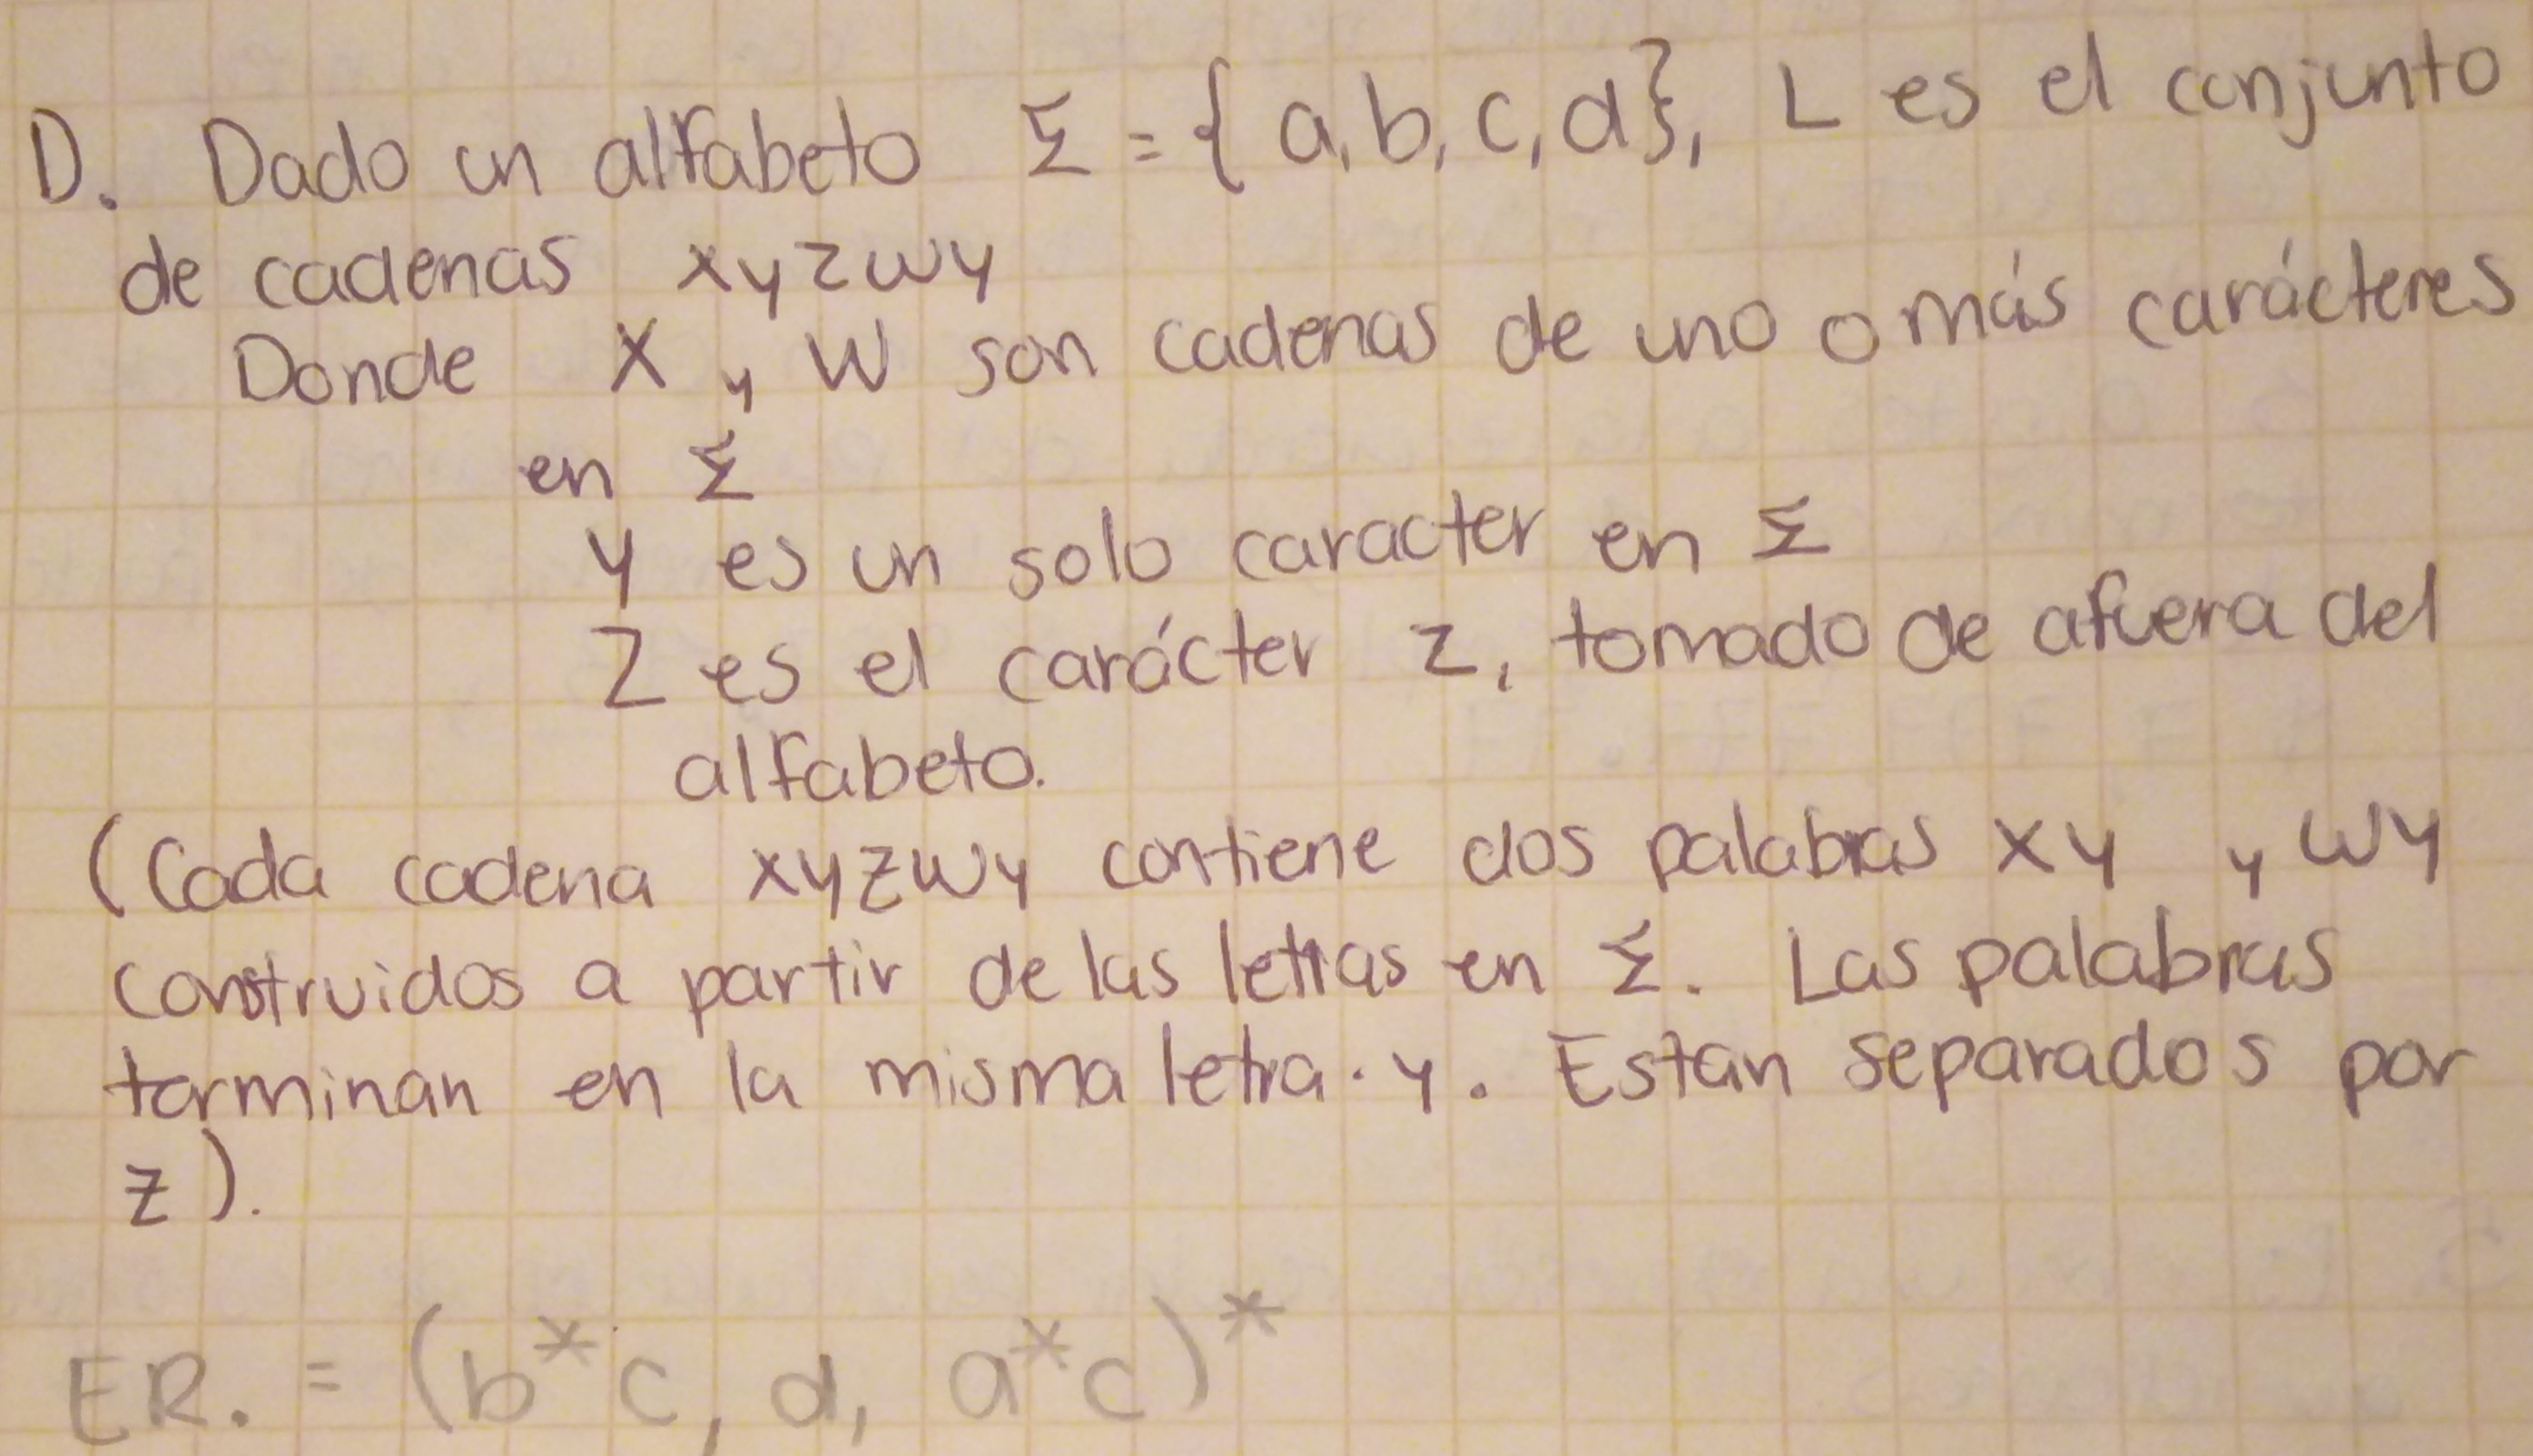 D. Dado un alfabeto Σ = { a, b, c, d}, L es el conjunto
de cadenas xyzwy
Donde X y W son cadenas de uno o más carácteres
en Σ
y es un solo caracter en Σ
Z es el carácter z, tomado de afuera del
alfabeto.
(Cada cadena xyzwy contiene dos palabras xy y wy
construidos a partir de las letras en Σ. Las palabras
terminan en la misma letra. y. Están separados por
z).
ER. = (b*c, d, a*c)*